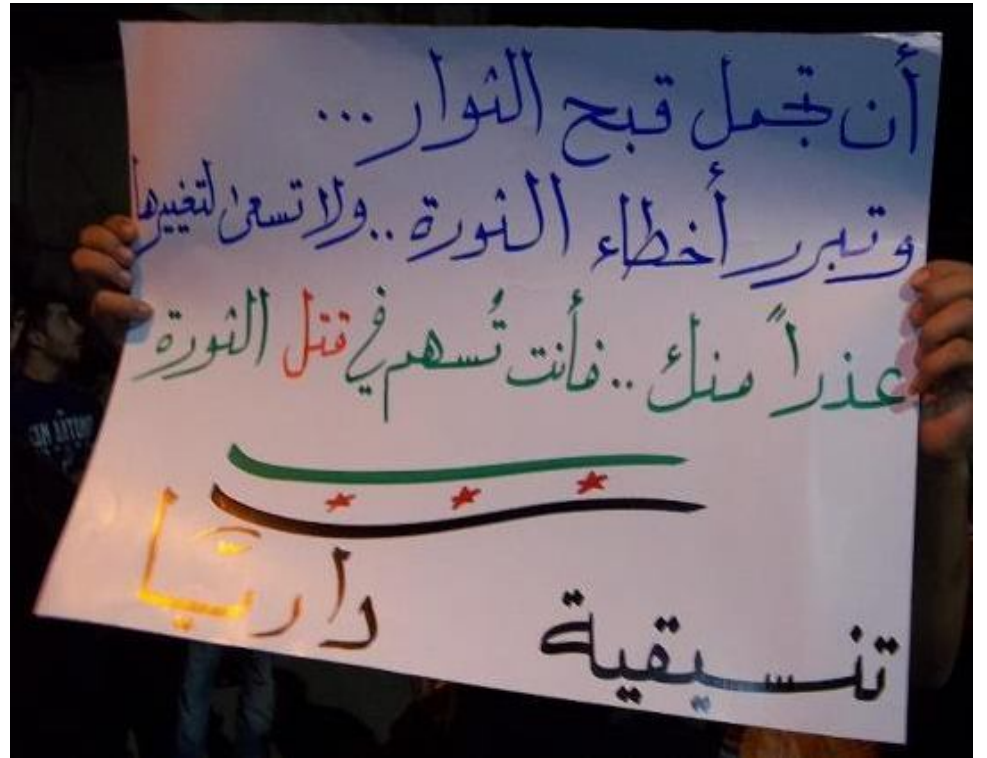 أن تجمل قبح الثوار ...
وتبرر أخطاء الثورة .. ولا تسعى لتغييرها
عذراً منك .. فأنت تُسهم في قتل الثورة
تنسيقية داريّا